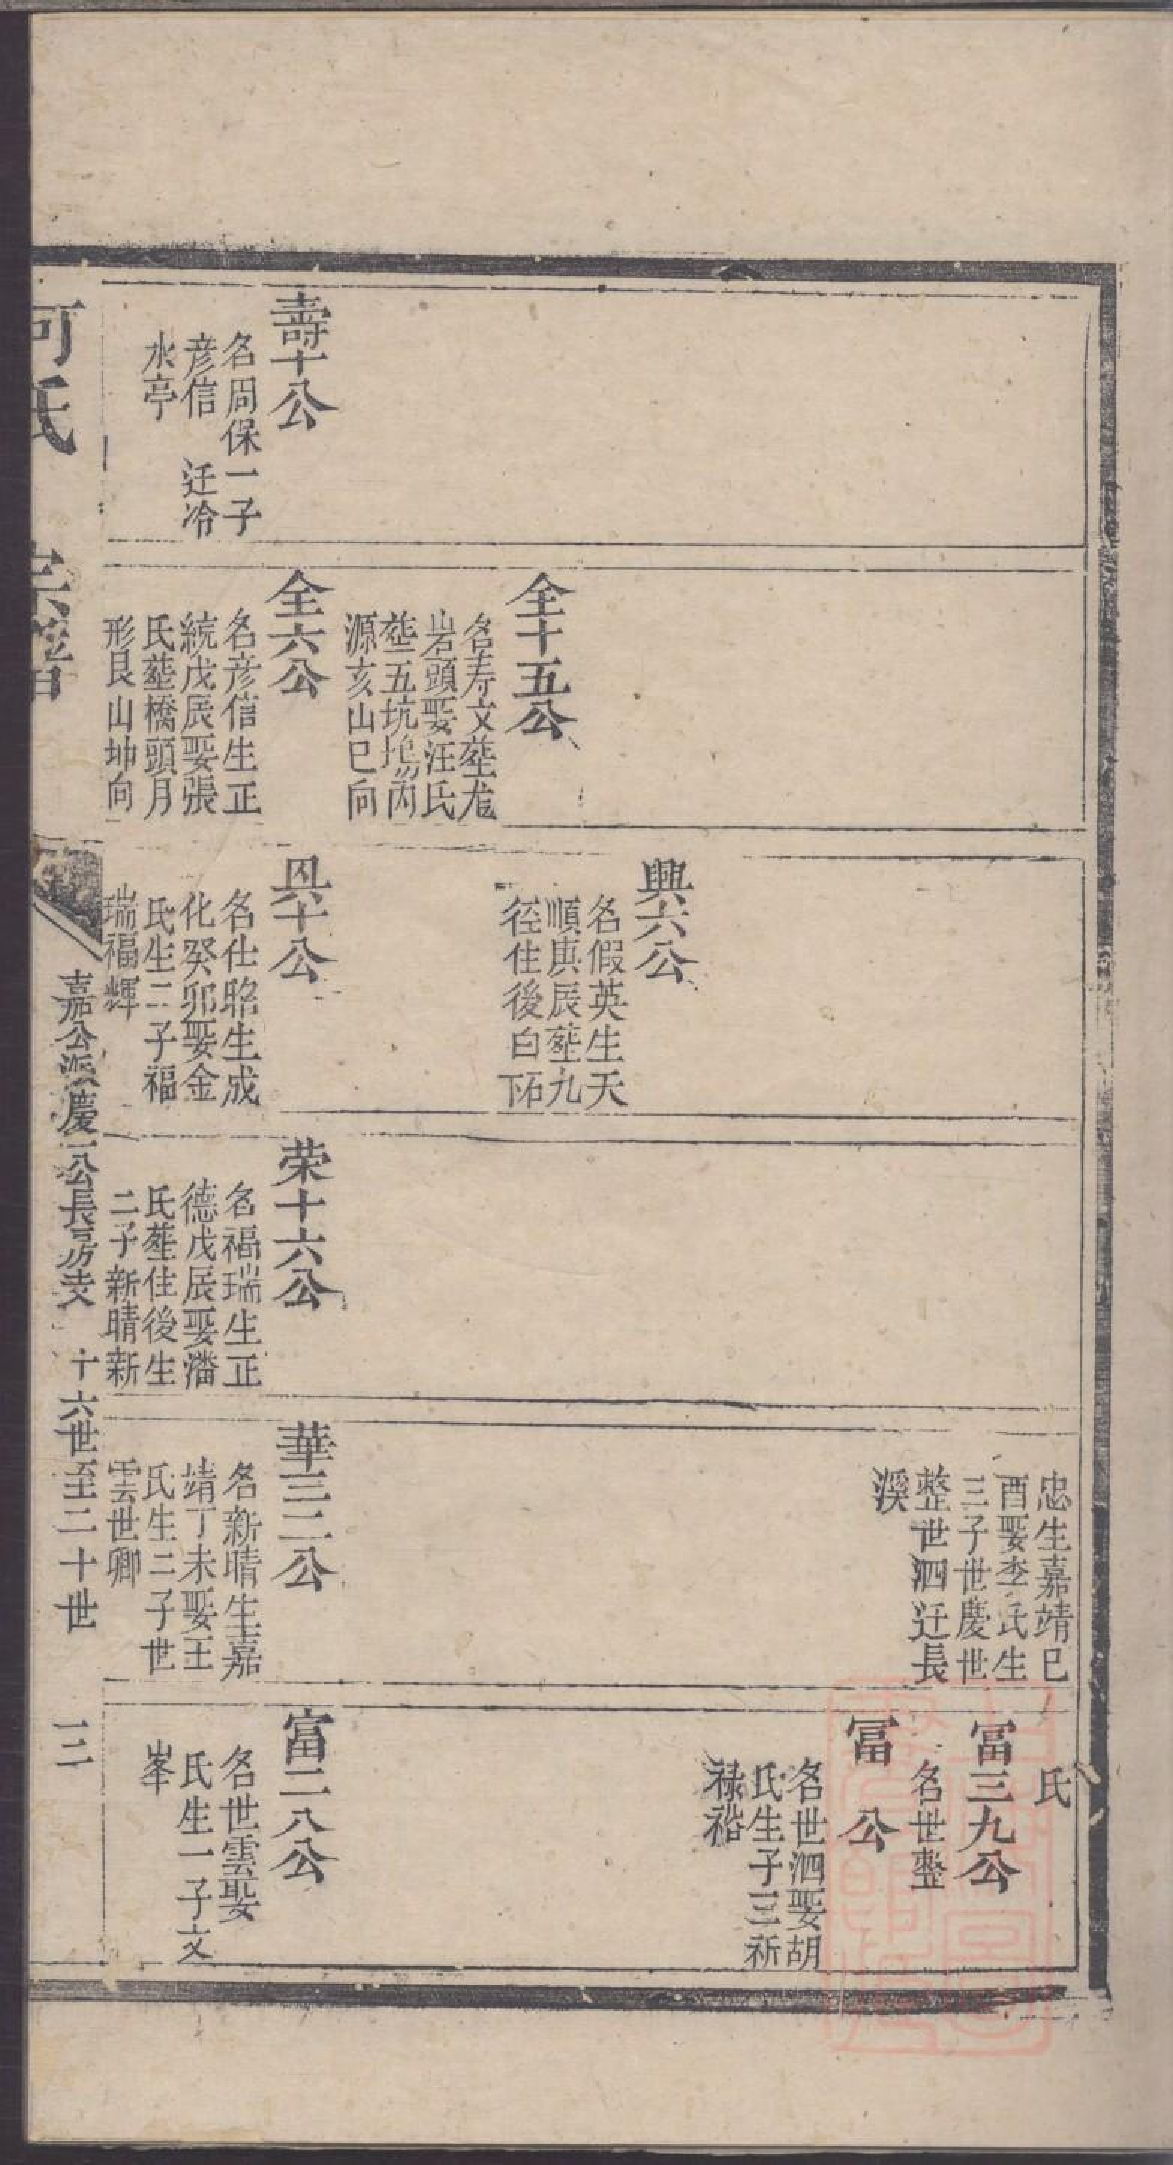 壽十公
名周保一子
彦信　迁冷
水亭
全十五公
名寿文塟尨
岩頭娶汪氏
塟五坑塢內
源亥山巳向
全六公
名彦信生正
統戊辰娶張
氏塟橋頭月
形艮山坤向
興六公
名假英生天
順庚辰塟九
徑住後白石下
具十公
名仕昭生成
化癸卯娶金
氏生二子福
瑞福輝
荣十六公
名福瑞生正
德戊辰娶潘
氏塟住後生
二子新晴新
忠生嘉靖巳
酉娶李氏生
三子世慶世
整世泗迁長
溪
華三二公
名新晴生嘉
靖丁未娶王
氏生二子世
雲世卿
氏
富三九公
名世整
富　公
名世泗娶胡
氏生子三祈
禄裕
富二八公
名世雲娶
氏生一子文
峯
何氏　宗譜
嘉公派慶一公長房支　十六世至二十世　三